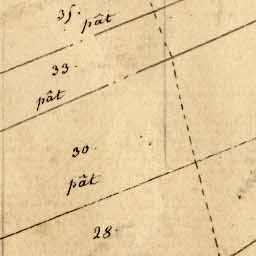 35.
pât
33.
pât
30.
pât
28.